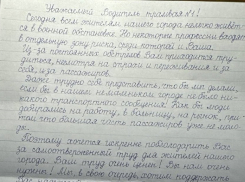 Уважаемый Водитель трамвая №1!
Сегодня всем жителям нашего города нелегко живёт-
ся в военной обстановке. Но некоторые профессии входят
в отдельную зону риска, среди которых и Ваша.
Из-за постоянных обстрелов Вам приходится тру-
диться, несмотря на страх и переживания и за
себя, и за пассажиров.
Даже трудно себе представить, что бы мы делали,
если бы в нашем немаленьком городе не было ни-
какого транспортного сообщения! Как бы люди
добирались на работу, в больницу, на рынок, при
том что большая часть пассажиров уже не моло-
ды.
Поэтому хочется искренне поблагодарить Вас
за самоотверженный труд для жителей нашего
города. Ваш труд очень ценен! Вы нам очень
нужны! Мы, в свою очередь, хотим поддержать